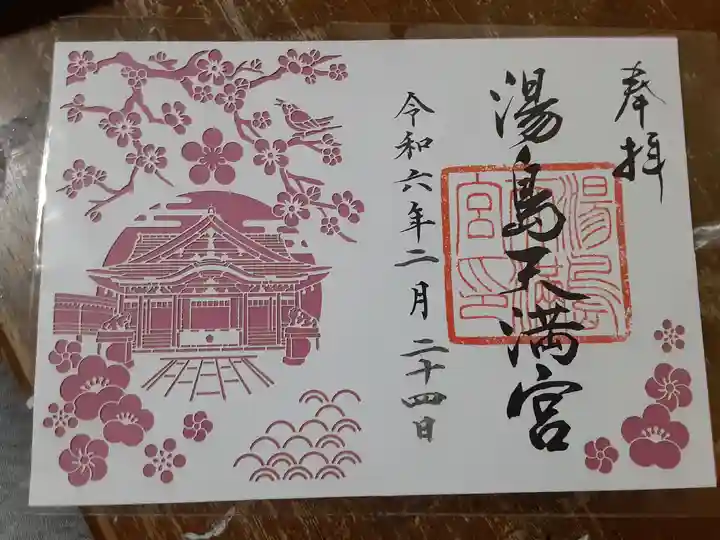 奉拝
湯島天満宮
令和六年二月二十四日